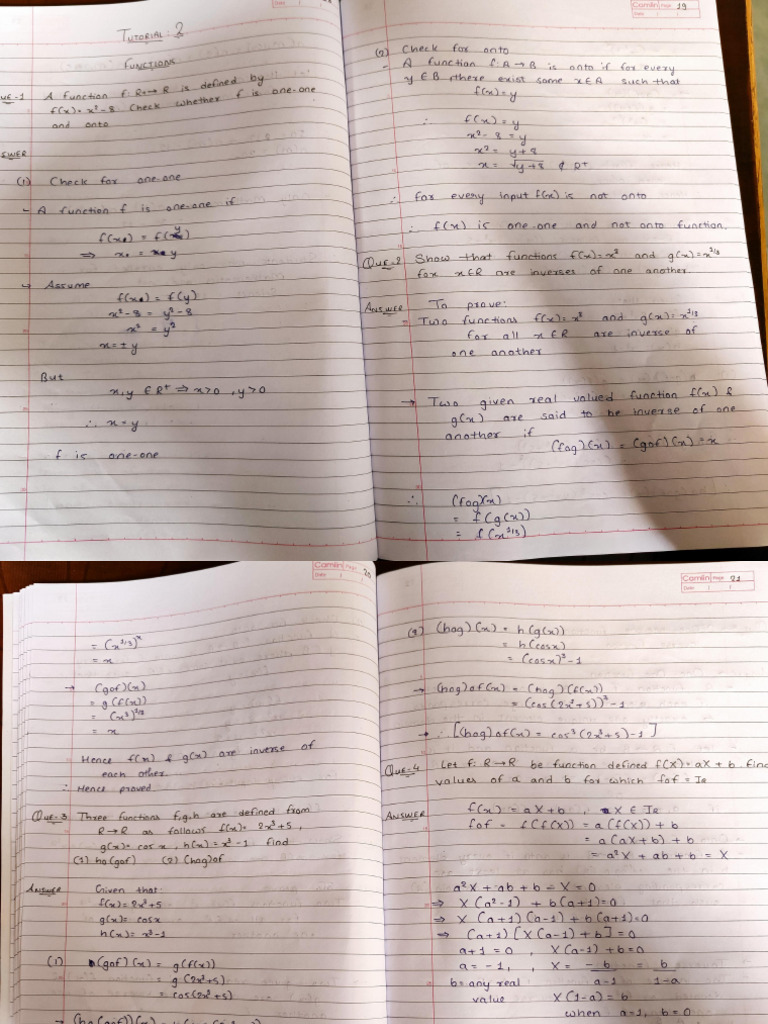 TUTORIAL: 2
FUNCTIONS
QUE-1 A function f: R+→R is defined by
f(x) = x²-8 Check whether f is one-one
and onto.
ANSWER
(1) Check for one-one
- A function f is one-one if
f(x) = f(y)
⇒ x = y
→ Assume
f(x) = f(y)
x²-8 = y²-8
x² = y²
x = ± y
But
x, y ∈ R+ ⇒ x>0 , y>0
∴ x = y
f is one-one
Camlin Page 19
Date / /
(2) Check for onto
- A function f: A→B is onto if for every
y ∈ B, there exist some x∈A such that
f(x) = y
∴ f(x) = y
x²-8 = y
x² = y+8
x = √y+8 ∉ R+
∴ for every input f(x) is not onto
∴ f(x) is one-one and not onto function.
QUE-2 Show that functions f(x)=x³ and g(x)=x^1/3
for x∈R are inverses of one another.
ANSWER To prove:
- Two functions f(x)=x³ and g(x)=x^1/3
for all x∈R are inverse of
one another
→ Two given real valued function f(x) &
g(x) are said to be inverse of one
another if
(fog)(x) = (gof)(x) = x
∴ (fog)(x)
= f(g(x))
= f(x^1/3)
Camlin Page 20
Date / /
= (x^1/3)³
= x
→ (gof)(x)
= g(f(x))
= (x³)^1/3
= x
Hence f(x) & g(x) are inverse of
each other.
∴ Hence proved
QUE-3 Three functions f,g,h are defined from
R→R as follows f(x) = 2x³+5,
g(x) = cos x, h(x) = x³-1 find
(1) ho(gof) (2) (hog)of
ANSWER Given that:
f(x) = 2x³+5
g(x) = cosx
h(x) = x³-1
(1) (gof)(x) = g(f(x))
= g(2x³+5)
= cos(2x³+5)
Camlin Page 21
Date / /
(2) (hog)(x) = h(g(x))
= h(cosx)
= (cosx)³-1
→ (hog)of(x) = (hog)(f(x))
= (cos(2x³+5))³-1
→ ∴ [(hog)of(x) = cos³(2x³+5)-1]
QUE-4 Let f: R→R be function defined f(X)=aX+b. Find
values of a and b for which fof = Ie
ANSWER f(x) = aX+b , X ∈ Ie
fof = f(f(X)) = a(f(X)) + b
= a(aX+b) + b
= a²X + ab + b = X
a²X + ab + b - X = 0
⇒ X(a²-1) + b(a+1)=0
⇒ X(a+1)(a-1) + b(a+1)=0
⇒ (a+1)[X(a-1)+b]=0
a+1 = 0 , X(a-1)+b=0
a = -1, , X = -b/a-1 = b/1-a
b = any real X(1-a) = b
value when a=1, b=0